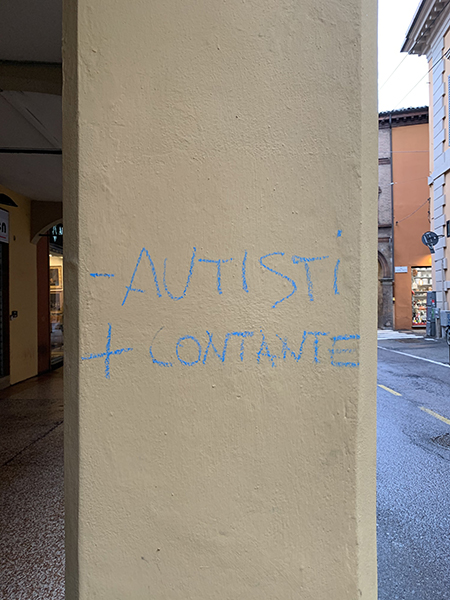 - AUTISTi
+ CONTANTE